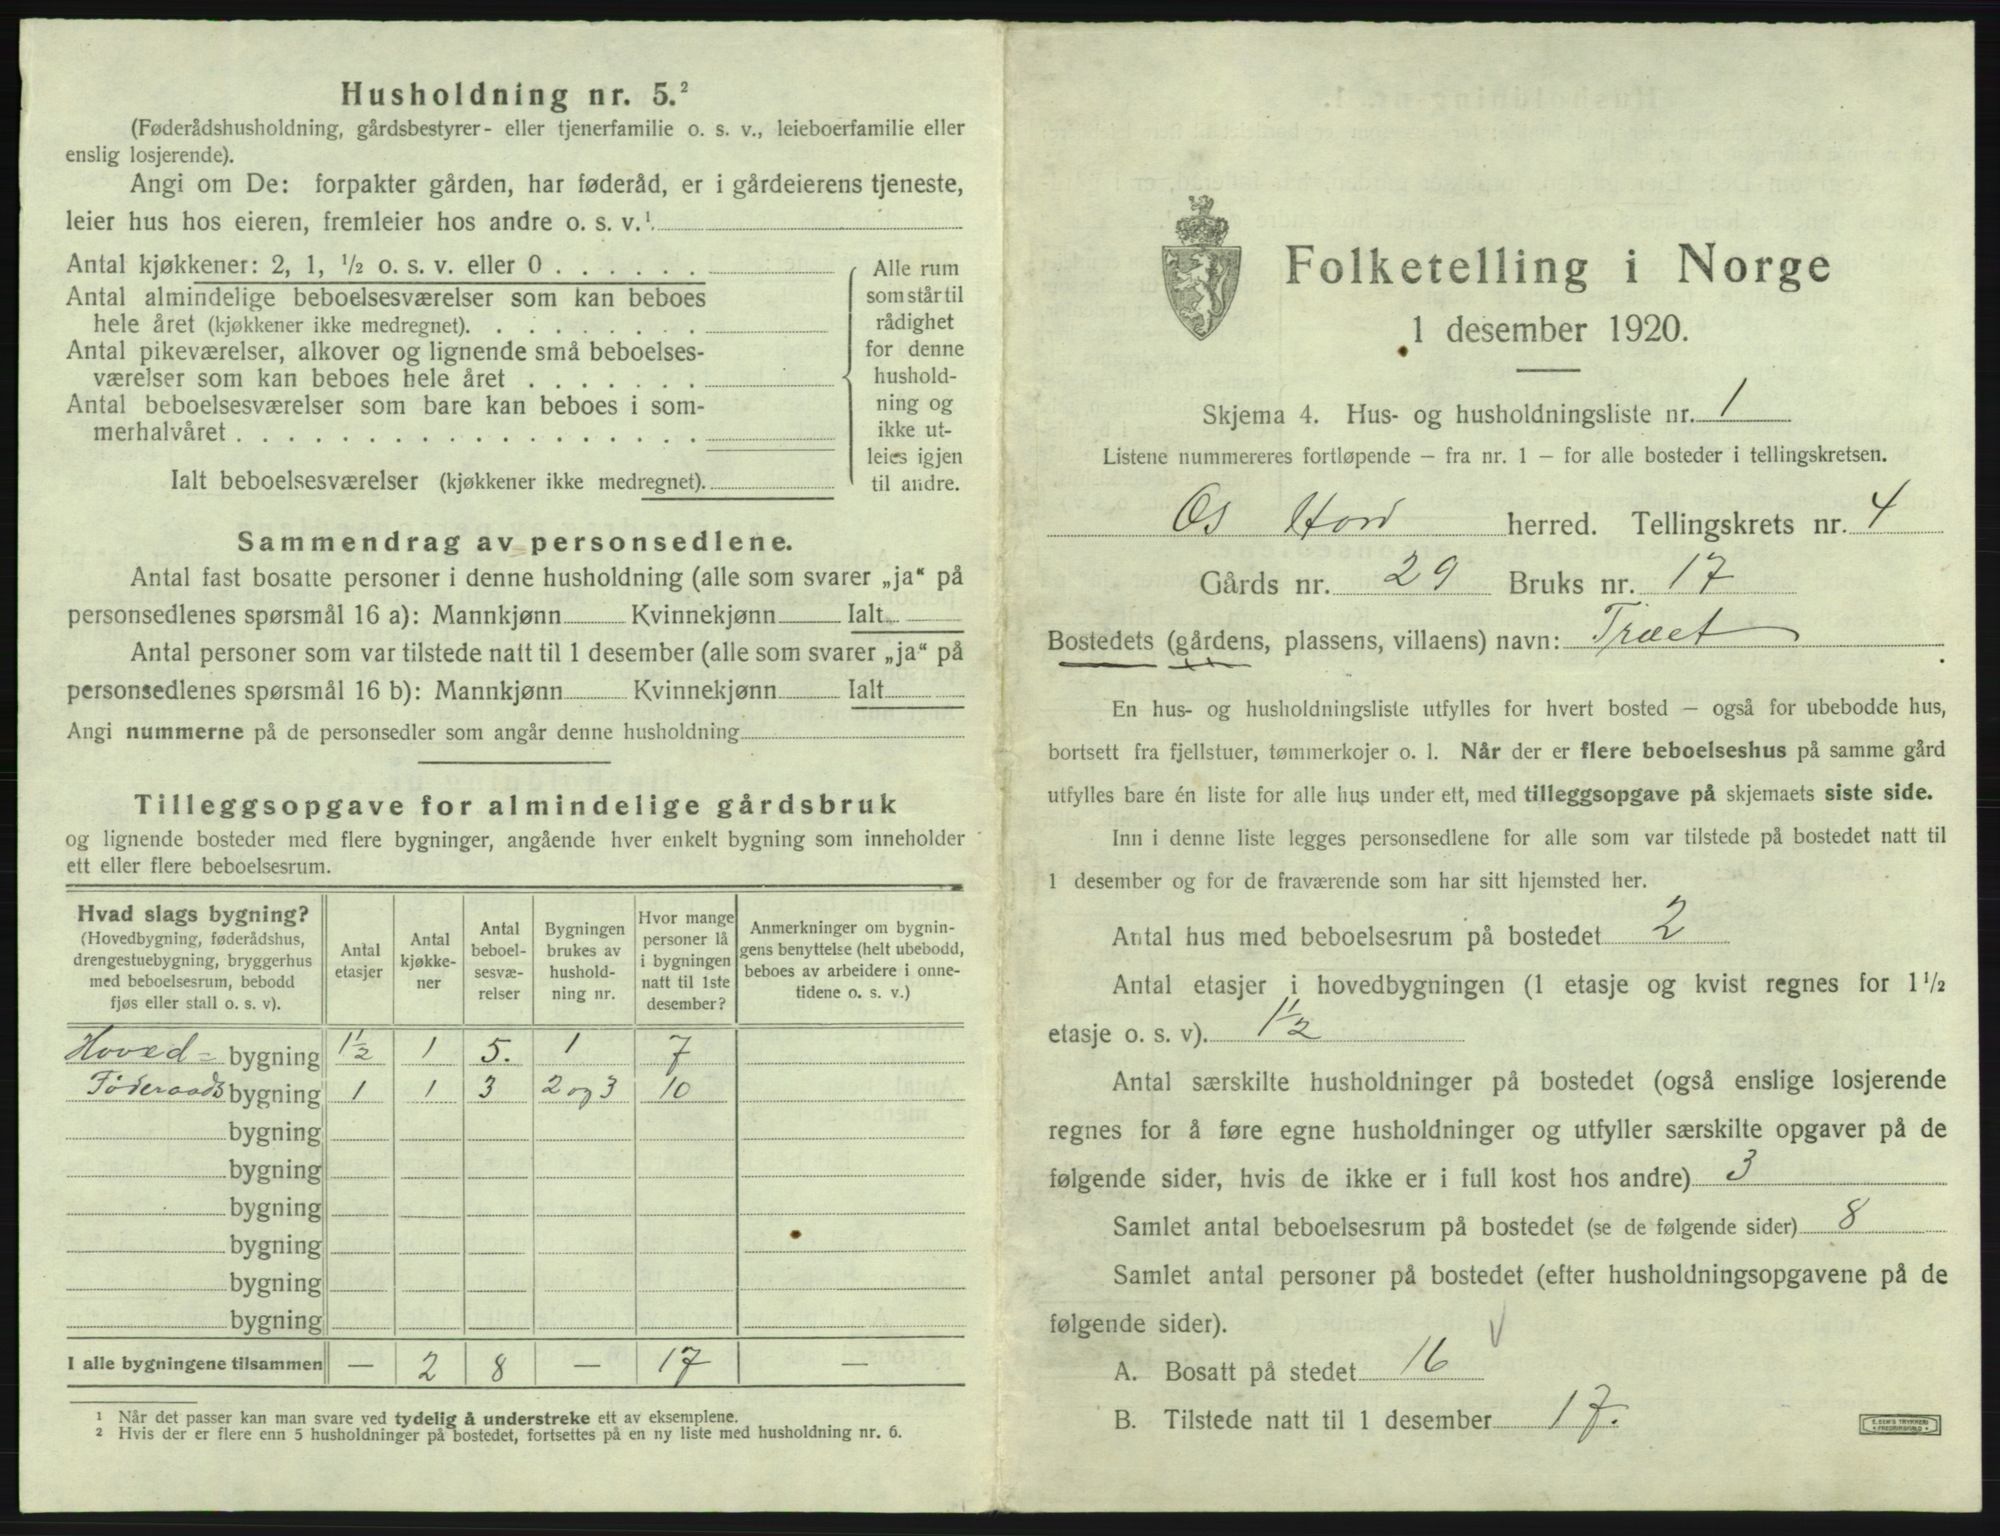 Husholdning nr. 5.²
(Føderådshusholdning, gårdsbestyrer- eller tjenerfamilie o. s. v., leieboerfamilie eller
enslig losjerende).
Angi om De: forpakter gården, har føderåd, er i gårdeierens tjeneste,
leier hus hos eieren, fremleier hos andre o. s. v.¹
Antal kjøkkener: 2, 1, ½ o. s. v. eller 0 . . . . . .
Antal almindelige beboelsesværelser som kan beboes
hele året (kjøkkener ikke medregnet). . . . . . . . .
Antal pikeværelser, alkover og lignende små beboelses-
værelser som kan beboes hele året . . . . . . .
Antal beboelsesværelser som bare kan beboes i som-
merhalvåret . . . . . . . . . . . . . . . . . .
Ialt beboelsesværelser (kjøkkener ikke medregnet).
Alle rum
som står til
rådighet
for denne
hushold-
ning og
ikke ut-
leies igjen
til andre.
Sammendrag av personsedlene.
Antal fast bosatte personer i denne husholdning (alle som svarer „ja“ på
personsedlenes spørsmål 16 a): Mannkjønn Kvinnekjønn Ialt
Antal personer som var tilstede natt til 1 desember (alle som svarer „ja“ på
personsedlenes spørsmål 16 b): Mannkjønn Kvinnekjønn Ialt
Angi nummerne på de personsedler som angår denne husholdning
Tilleggsopgave for almindelige gårdsbruk
og lignende bosteder med flere bygninger, angående hver enkelt bygning som inneholder
ett eller flere beboelsesrum.
Hvad slags bygning?
(Hovedbygning, føderådshus,
drengestuebygning, bryggerhus
med beboelsesrum, bebodd
fjøs eller stall o. s. v).
Antal
etasjer
Antal
kjøkke-
ner
Antal
beboel-
sesvæ-
relser
Bygningen
brukes av
hushold-
ning nr.
Hvor mange
personer lå
i bygningen
natt til 1ste
desember?
Anmerkninger om bygnin-
gens benyttelse (helt ubebodd,
beboes av arbeidere i onne-
tidene o. s. v.)
Hoved- bygning 1½ 1 5. 1 7
Föderaads bygning 1 1 3 2 og 3 10
bygning
bygning
bygning
bygning
bygning
bygning
I alle bygningene tilsammen — 2 8 — 17 —
¹ Når det passer kan man svare ved tydelig å understreke ett av eksemplene.
² Hvis der er flere enn 5 husholdninger på bostedet, fortsettes på en ny liste med husholdning nr. 6.
Folketelling i Norge
1 desember 1920.
Skjema 4. Hus- og husholdningsliste nr. 1
Listene nummereres fortløpende – fra nr. 1 – for alle bosteder i tellingskretsen.
Os Hord herred. Tellingskrets nr. 4
Gårds nr. 29 Bruks nr. 17
Bostedets (gårdens, plassens, villaens) navn: Træet
En hus- og husholdningsliste utfylles for hvert bosted – også for ubebodde hus,
bortsett fra fjellstuer, tømmerkojer o. l. Når der er flere beboelseshus på samme gård
utfylles bare én liste for alle hus under ett, med tilleggsopgave på skjemaets siste side.
Inn i denne liste legges personsedlene for alle som var tilstede på bostedet natt til
1 desember og for de fraværende som har sitt hjemsted her.
Antal hus med beboelsesrum på bostedet 2
Antal etasjer i hovedbygningen (1 etasje og kvist regnes for 1½
etasje o. s. v). 1½
Antal særskilte husholdninger på bostedet (også enslige losjerende
regnes for å føre egne husholdninger og utfyller særskilte opgaver på de
følgende sider, hvis de ikke er i full kost hos andre) 3
Samlet antal beboelsesrum på bostedet (se de følgende sider) 8
Samlet antal personer på bostedet (efter husholdningsopgavene på de
følgende sider).
A. Bosatt på stedet 16
B. Tilstede natt til 1 desember 17.